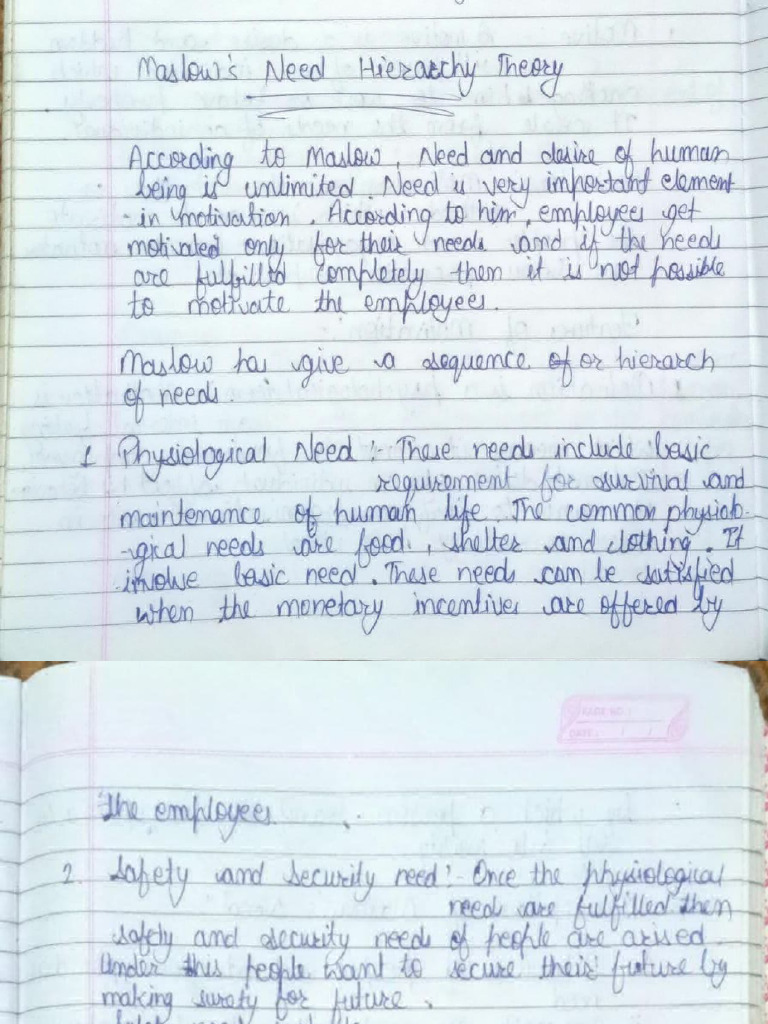 Maslow's Need Hierarchy Theory
According to Maslow, Need and desire of human
being is unlimited Need is very important element
in motivation. According to him, employees get
motivated only for their needs and if the needs
are fulfilled completely then it is not possible
to motivate the employees.
Maslow has give a sequence of or hierarch
of needs
1 Physiological Need : These needs include basic
requirement for survival and
maintenance of human life. The common physiolo-
-gical needs are food, shelter and clothing. It
involve basic need. These needs can be satisfied
when the monetary incentives are offered by
PAGE NO.:
DATE: / /
the employees.
2. Safety and Security need :- Once the physiological
needs are fulfilled then
safety and security needs of people are arised.
Under this people want to secure their future by
making surety for future.